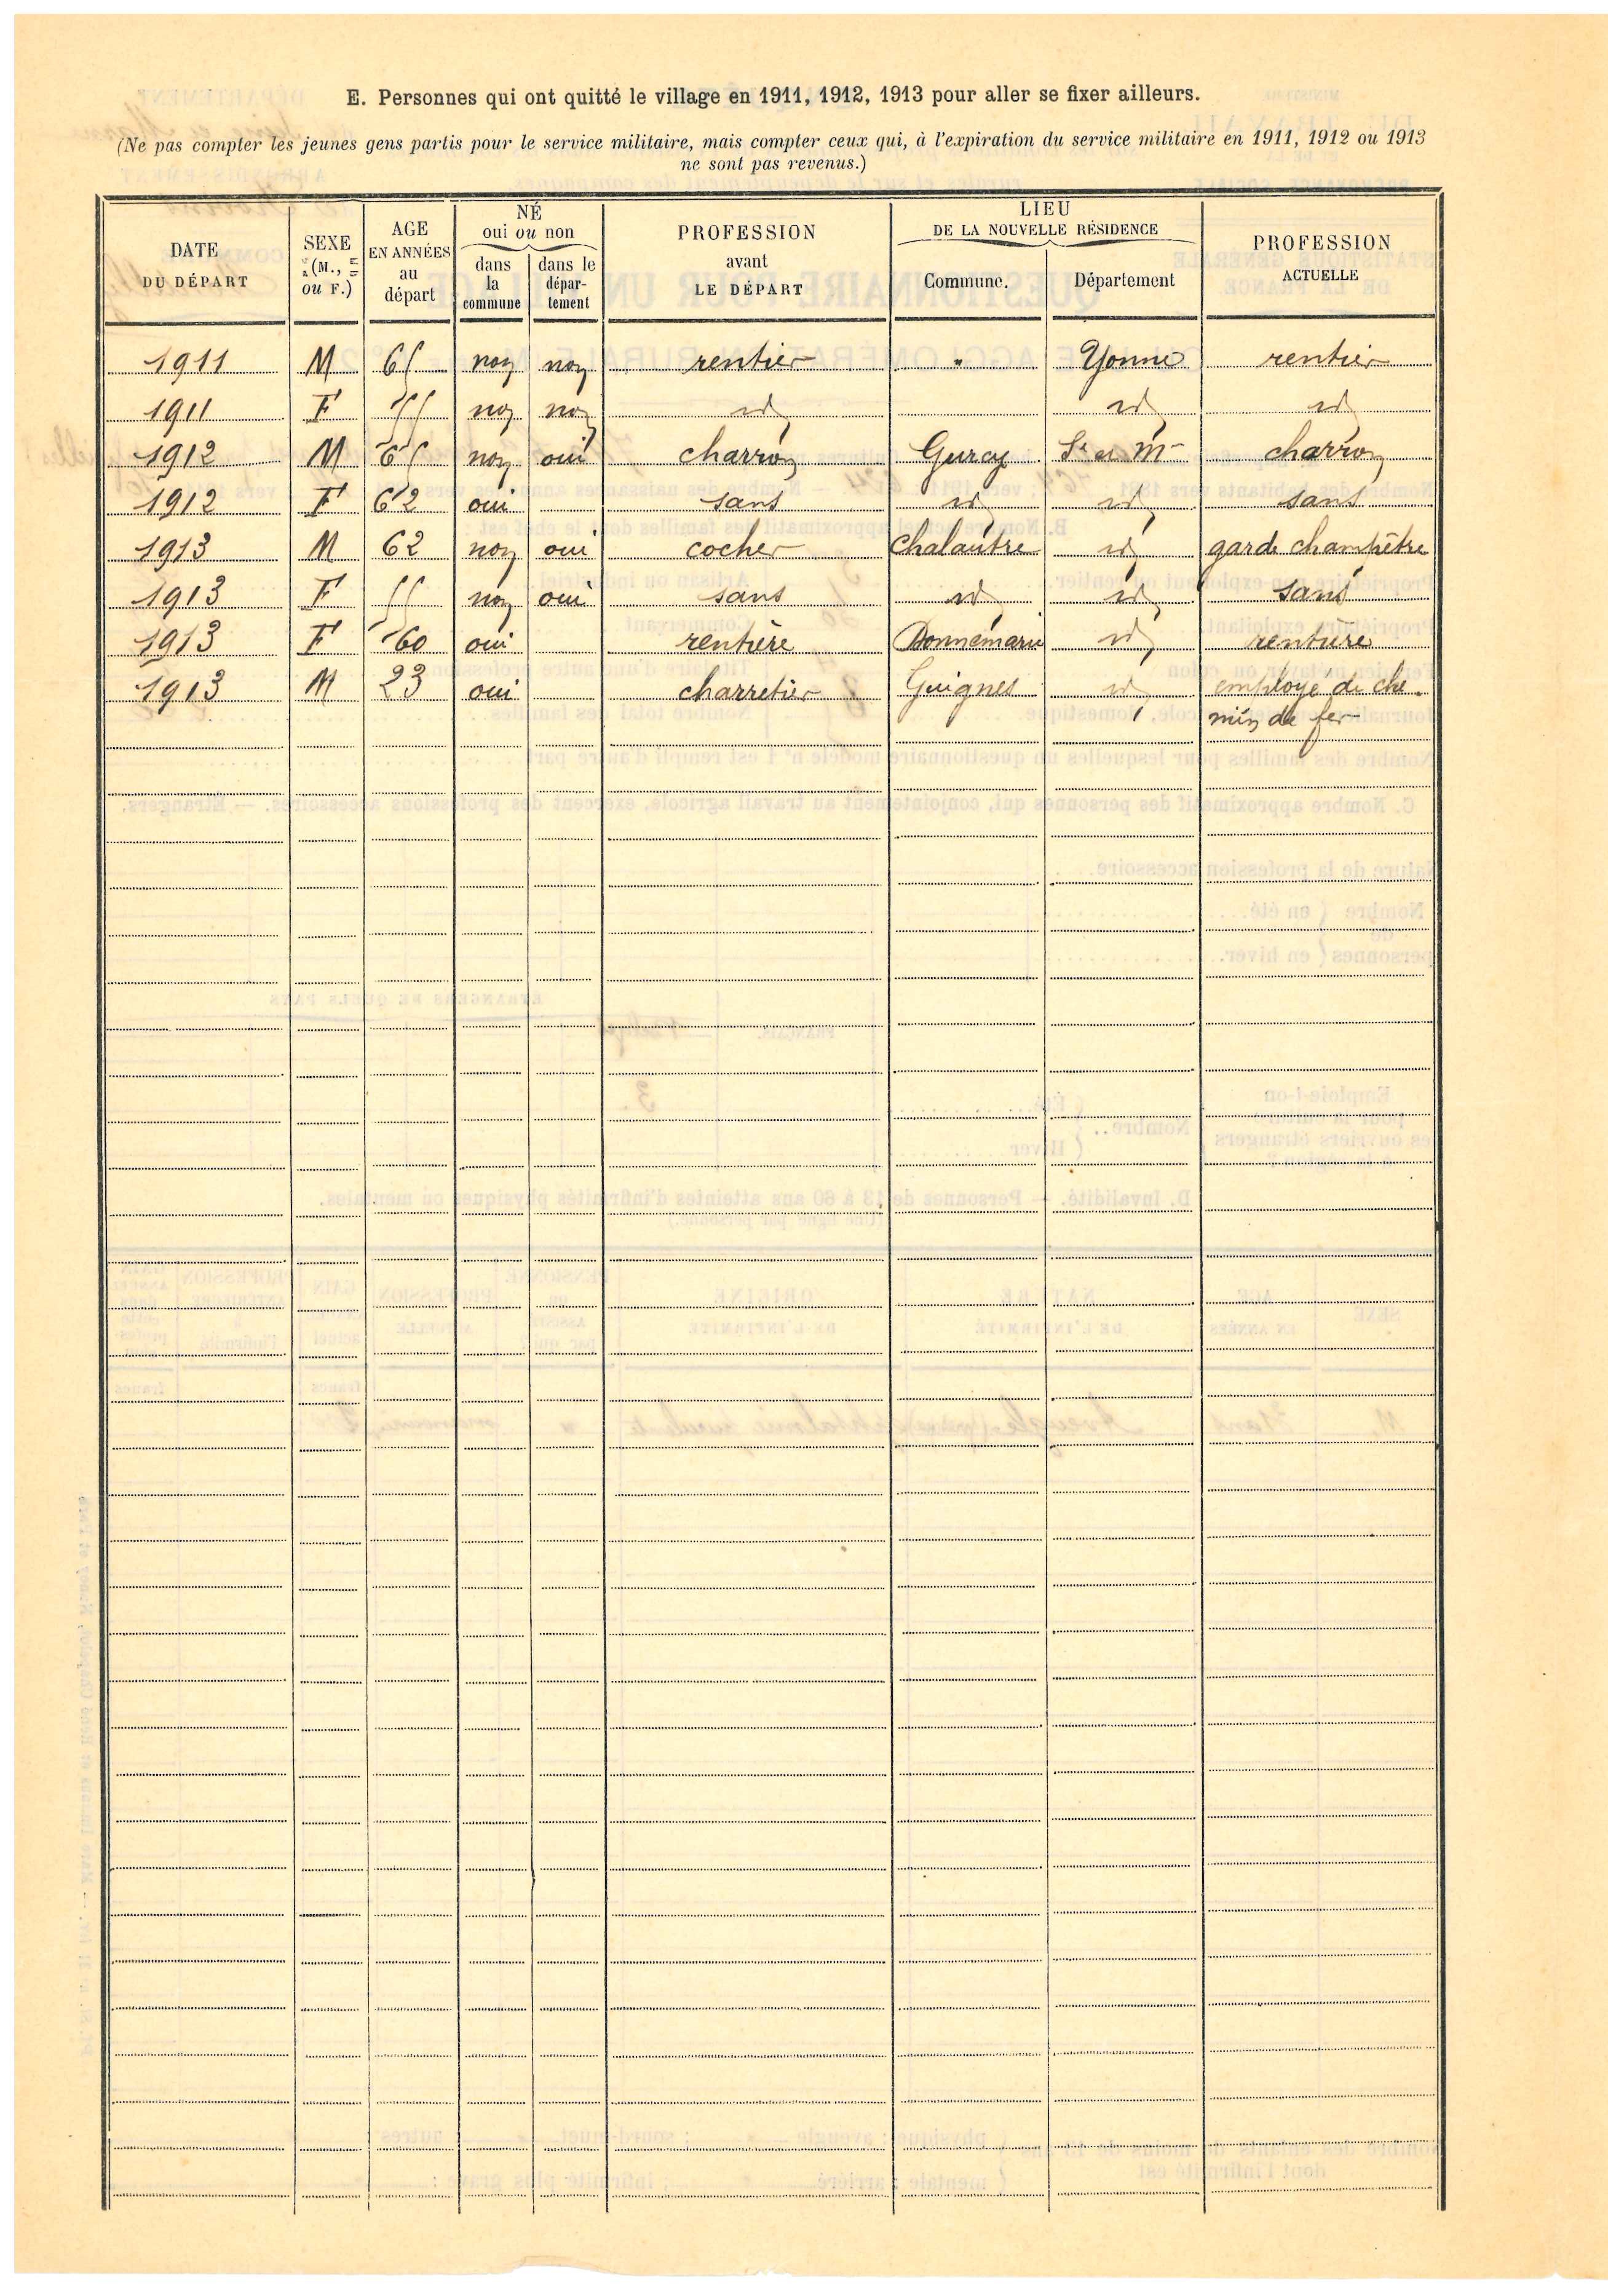 E. Personnes qui ont quitté le village en 1911, 1912, 1913 pour aller se fixer ailleurs.
(Ne pas compter les jeunes gens partis pour le service militaire, mais compter ceux qui, à l'expiration du service militaire en 1911, 1912 ou 1913
ne sont pas revenus.)
DATE DU DÉPART | SEXE (M., OU F.) | AGE EN ANNÉES au départ | NÉ oui ou non dans la commune | dans le dépar-tement | PROFESSION avant LE DÉPART | LIEU DE LA NOUVELLE RÉSIDENCE Commune. | Département | PROFESSION ACTUELLE
1911 M 65 non non rentier " Yonne rentier
1911 F 55 non non id id id
1912 M 65 non oui charron Gurcy Se et Me charron
1912 F 62 oui sans id id sans
1913 M 62 non oui cocher Chalautre id garde champêtre
1913 F 55 non oui sans id id sans
1913 F 60 oui rentière Donnemarie id rentière
1913 M 23 oui charretier Guignes id employé de che-
min de fer